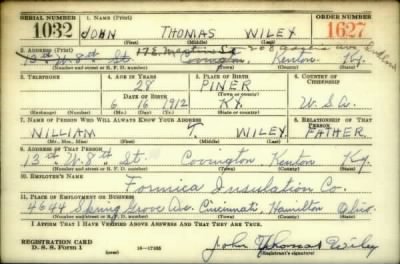 SERIAL NUMBER 1. NAME (Print) ORDER NUMBER
1032 JOHN THOMAS WILEY 1627
(First) (Middle) (Last)
2. ADDRESS (Print)
13th W. 8th St. Covington, Kenton Ky.
(Number and street or R. F. D. number) (Town) (County) (State)
3. TELEPHONE 4. AGE IN YEARS 5. PLACE OF BIRTH 6. COUNTRY OF CITIZENSHIP
28 PINER
DATE OF BIRTH (Town or county)
6 16 1912 KY. U.S.A.
(Mo.) (Day) (Yr.) (State or country)
7. NAME OF PERSON WHO WILL ALWAYS KNOW YOUR ADDRESS 8. RELATIONSHIP OF THAT PERSON
WILLIAM T. WILEY FATHER
(Mr., Mrs., Miss) (First) (Middle) (Last)
9. ADDRESS OF THAT PERSON
13th W. 8th St. Covington Kenton Ky.
(Number and street or R. F. D. number) (Town) (County) (State)
10. EMPLOYER'S NAME
Formica Insulation Co.
11. PLACE OF EMPLOYMENT OR BUSINESS
4644 Spring Grove Ave. Cincinnati, Hamilton Ohio.
(Number and street or R. F. D. number) (Town) (County) (State)
I AFFIRM THAT I HAVE VERIFIED ABOVE ANSWERS AND THAT THEY ARE TRUE.
REGISTRATION CARD
D. S. S. Form 1 John Thomas Wiley
(Registrant's signature)